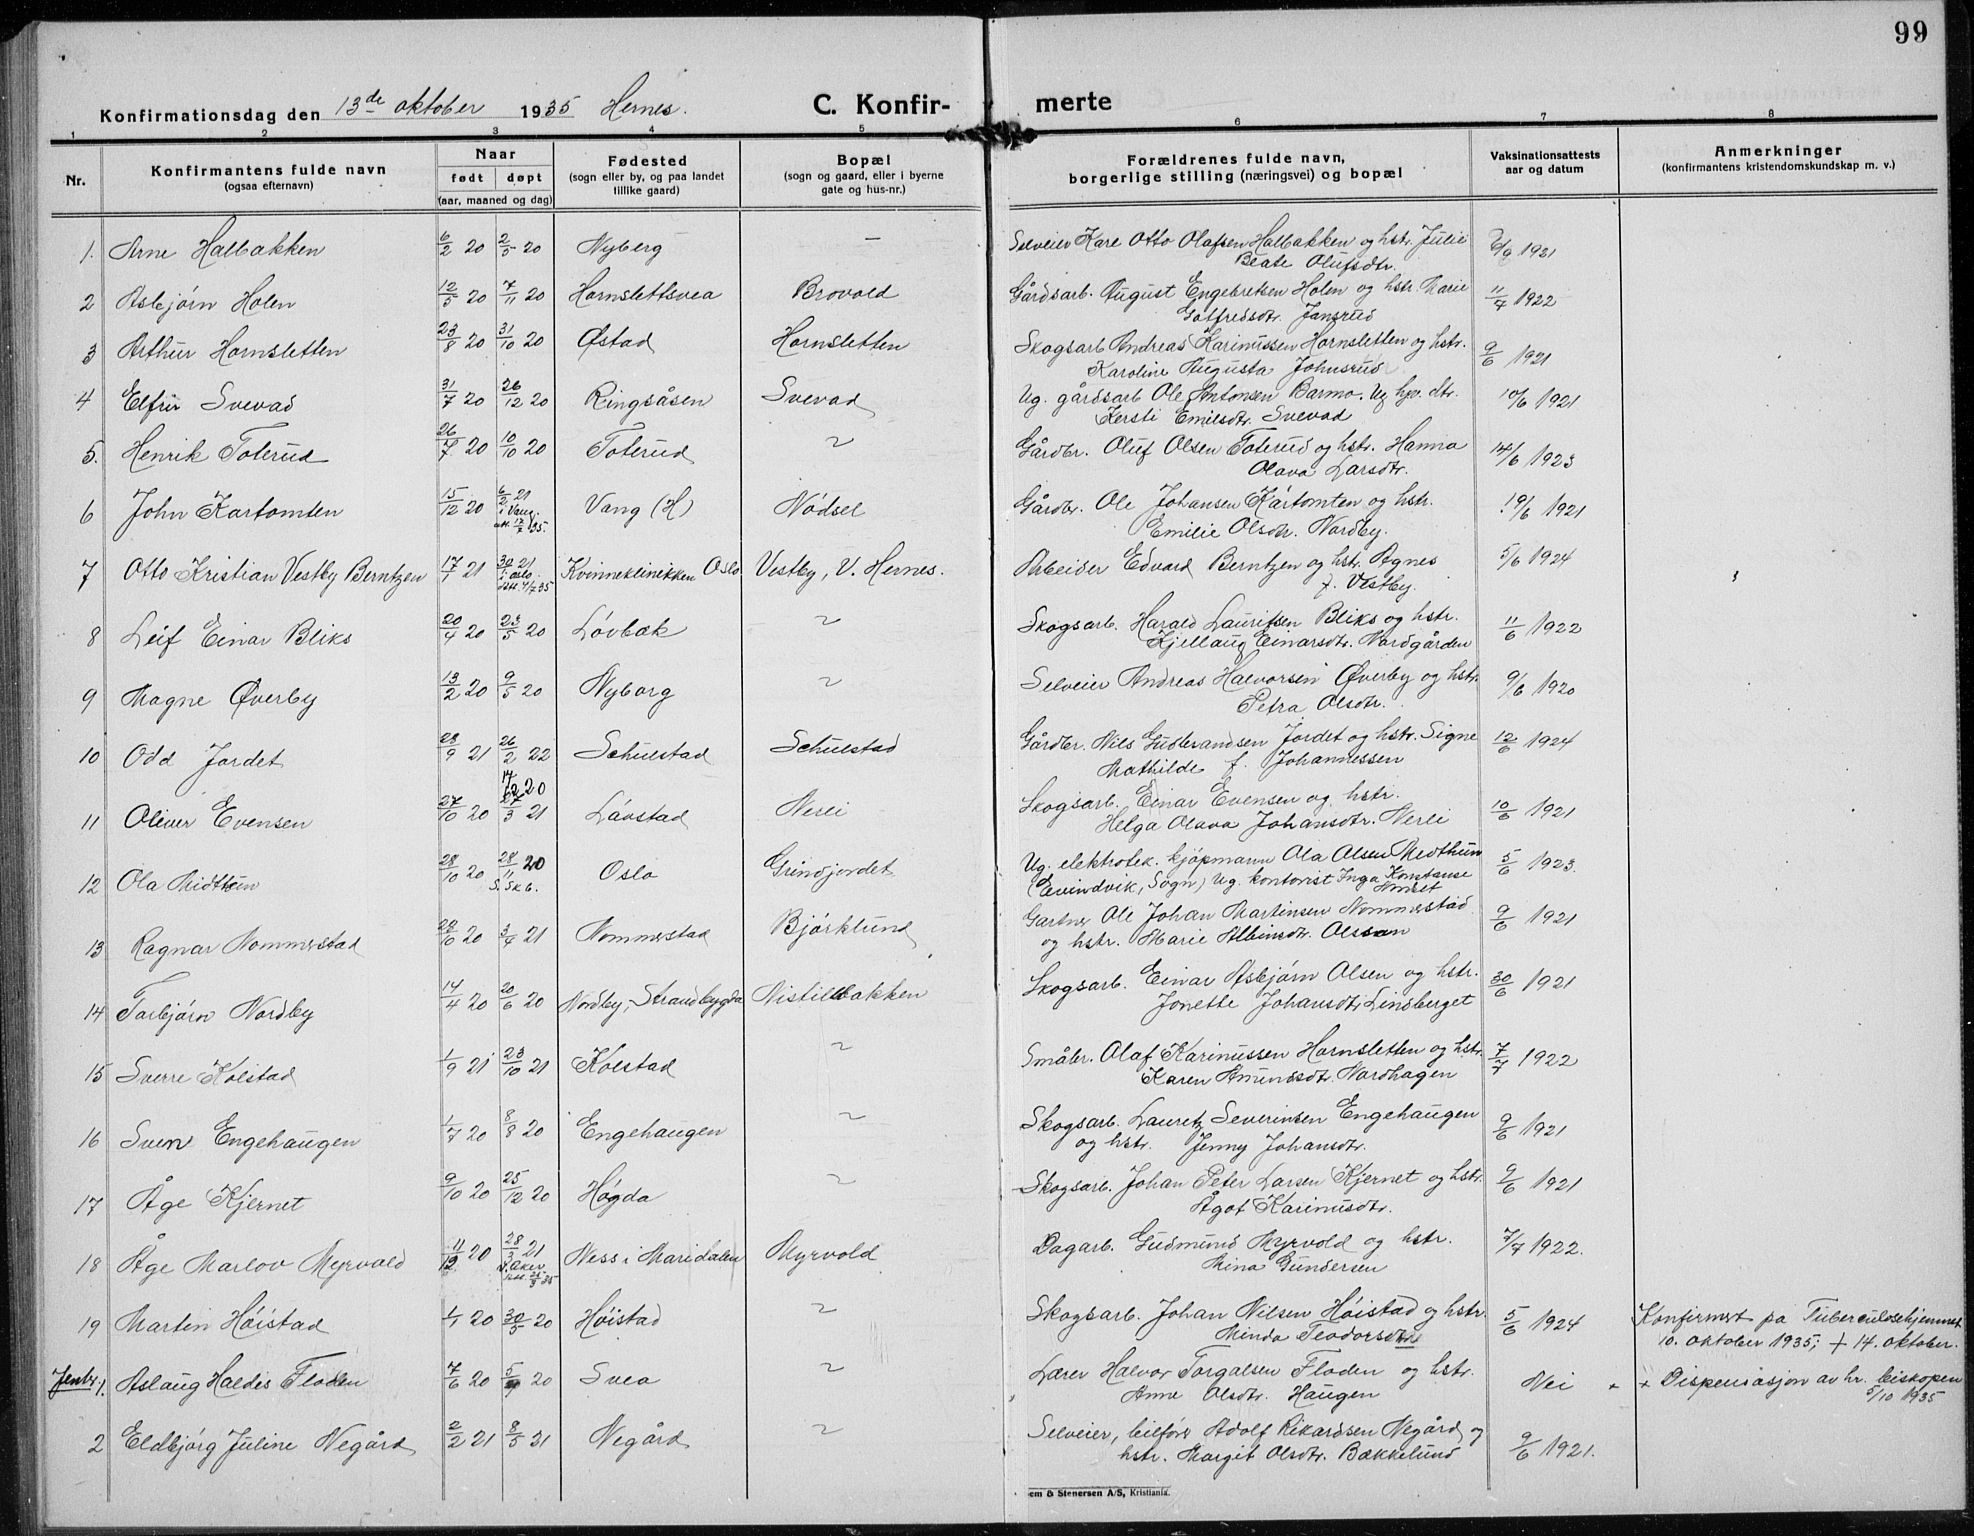 99
Konfirmationsdag den 13de oktober 1935 Hernes. C. Konfir- merte
1 2 3 4 5 6 7 8
Nr. Konfirmantens fulde navn (ogsaa efternavn) Naar født døpt (aar, maaned og dag) Fødested (sogn eller by, og paa landet tillike gaard) Bopæl (sogn og gaard, eller i byerne gate og hus-nr.) Forældrenes fulde navn, borgerlige stilling (næringsvei) og bopæl Vaksinationsattests aar og datum Anmerkninger (konfirmantens kristendomskundskap m. v.)
1. Arne Halbakken 6/2 20 2/5 20 Nyberg – Selveier Kare Otto Olafsen Halbakken og hstr. Julie 1921
Beate Olufsdtr.
2 Asbjørn Holen 12/5 20 7/11 20 Hornslettsvea Brovold Gårdsarb. August Engebretsen Holen og hstr. Marie 1922
Gotfredsdtr. Jansrud
3 Arthur Hornsletten 23/8 20 31/10 20 Østad Hornsletten Skogsarb Andreas Karinussen Hornsletten og hstr. 9/6 1921
Karoline Augusta Johnsrud
4 Elfri Svevad 31/7 20 26/12 20 Ringsåsen Svevad Ug. gårdsarb Ole Antonsen Barmo. Ug hjv. dtr. 10/6 1921
Kersti Emilsdtr. Svevad
5. Henrik Toterud 26/7 20 10/10 20 Toterud ~ Gårdbr. Oluf Olsen Toterud og hstr. Hanna 14/6 1923
Olava Larsdtr.
6 John Kartomten 15/12 20 6/2 21 i Vang. att. 17/7 35. Vang (H) Nødsel Gårdbr. Ole Johansen Kartomten og hstr. 1921
Emilie Olsdtr. Nordby.
7 Otto Kristian Vestby Berntzen 17/1 21 21 i Oslo Kvinneklinikken Oslo Vestby, V. Hernes. Arbeider Edvard Berntzen og hstr. Agnes 5/6 1924
f. Vestby.
8 Leif Einar Bliks 20/4 20 23/5 20 Løvbæk ~ Skogsarb. Harald Lauritsen Bliks og hstr. 11/6 1922
Kjellaug Einarsdtr. Nordgården
9 Magne Øverby 13/2 20 9/5 20 Nyborg ~ Selveier Andreas Halvorsen Øverby og hstr. 9/6 1920
Petra Olsdtr.
10 Odd Jordet 28/9 21 26/2 22 Schulstad Schulstad Gårdbr. Nils Gudbrandsen Jordet og hstr. Signe 12/6 1924
Mathilde f. Johannessen
11 Oliver Evensen 27/10 20 27/3 21 Løvstad Nerli Skogsarb. Einar Evensen og hstr. 10/6 1921
Helga Olava Johansdtr. Nerli
12 Ola Midthun 28/10 20 28/11 20 Oslo Grindjordet Ug. elektrotek. kjøpmann Ola Olsen Midthun 5/6 1923.
(Eivindvik, Sogn) Ug. kontorist Inga Konstanse
13 Ragnar Nommerstad 28/10 20 3/4 21 Nommerstad Bjørklund Gartner Ole Johan Martinsen Nommerstad 9/6 1921
og hstr. Marie Albinsdtr. Olsson
14 Torbjørn Nordby 14/4 20 20/6 20 Nordby, Strandbygda Nistilbakken Skogsarb. Einar Asbjørn Olsen og hstr. 30/6 1921
Jonette Johansdtr. Lindberget
15 Sverre Kolstad 1/9 21 23/10 21 Kolstad ~ Småbr. Olaf Karinussen Hornsletten og hstr. 7/7 1922
Karen Amundsdtr. Nordhagen
16 Svern Engehaugen 1/7 20 8/8 20 Engehaugen ~ Skogsarb. Lauretz Severinsen Engehaugen 9/6 1921
og hstr. Jenny Johansdtr.
17 Åge Kjernet 9/10 20 25/12 20 Høgda ~ Skogsarb. Johan Peter Larsen Kjernet og hstr. 9/6 1921
Ågot Karinusdtr.
18 Åge Marlov Myrvold 11/12 20 28/3 21 Ness i Maridalen Myrvold Dagarb. Gudmund Myrvold og hstr. 7/7 1922.
Mina Gundersen
19 Martin Høistad 1/1 20 30/5 20 Høistad ~ Skogsarb. Johan Nilsen Høistad og hstr. 5/6 1924 Konfirmert på Tuberculosehjemmet
Minda Teodorsdtr. 10. oktober 1935; + 14. oktober.
Jentr. 1. Aslaug Haldis Floden 7/6 20 20 Svea ~ Lærer Halvor Torgalsen Floden og hstr. Nei + Dispensasjon av hr. biskopen
Anne Olsdtr. Haugen 5/10 1935
2 Eldbjørg Juline Negård 2/2 21 8/5 21 Negård ~ Selveier, bilfører Adolf Rikardsen Negård og 9/6 1921.
hstr. Margit Olsdtr. Bækkelund
em & Stenersen A/S, Kristiania.